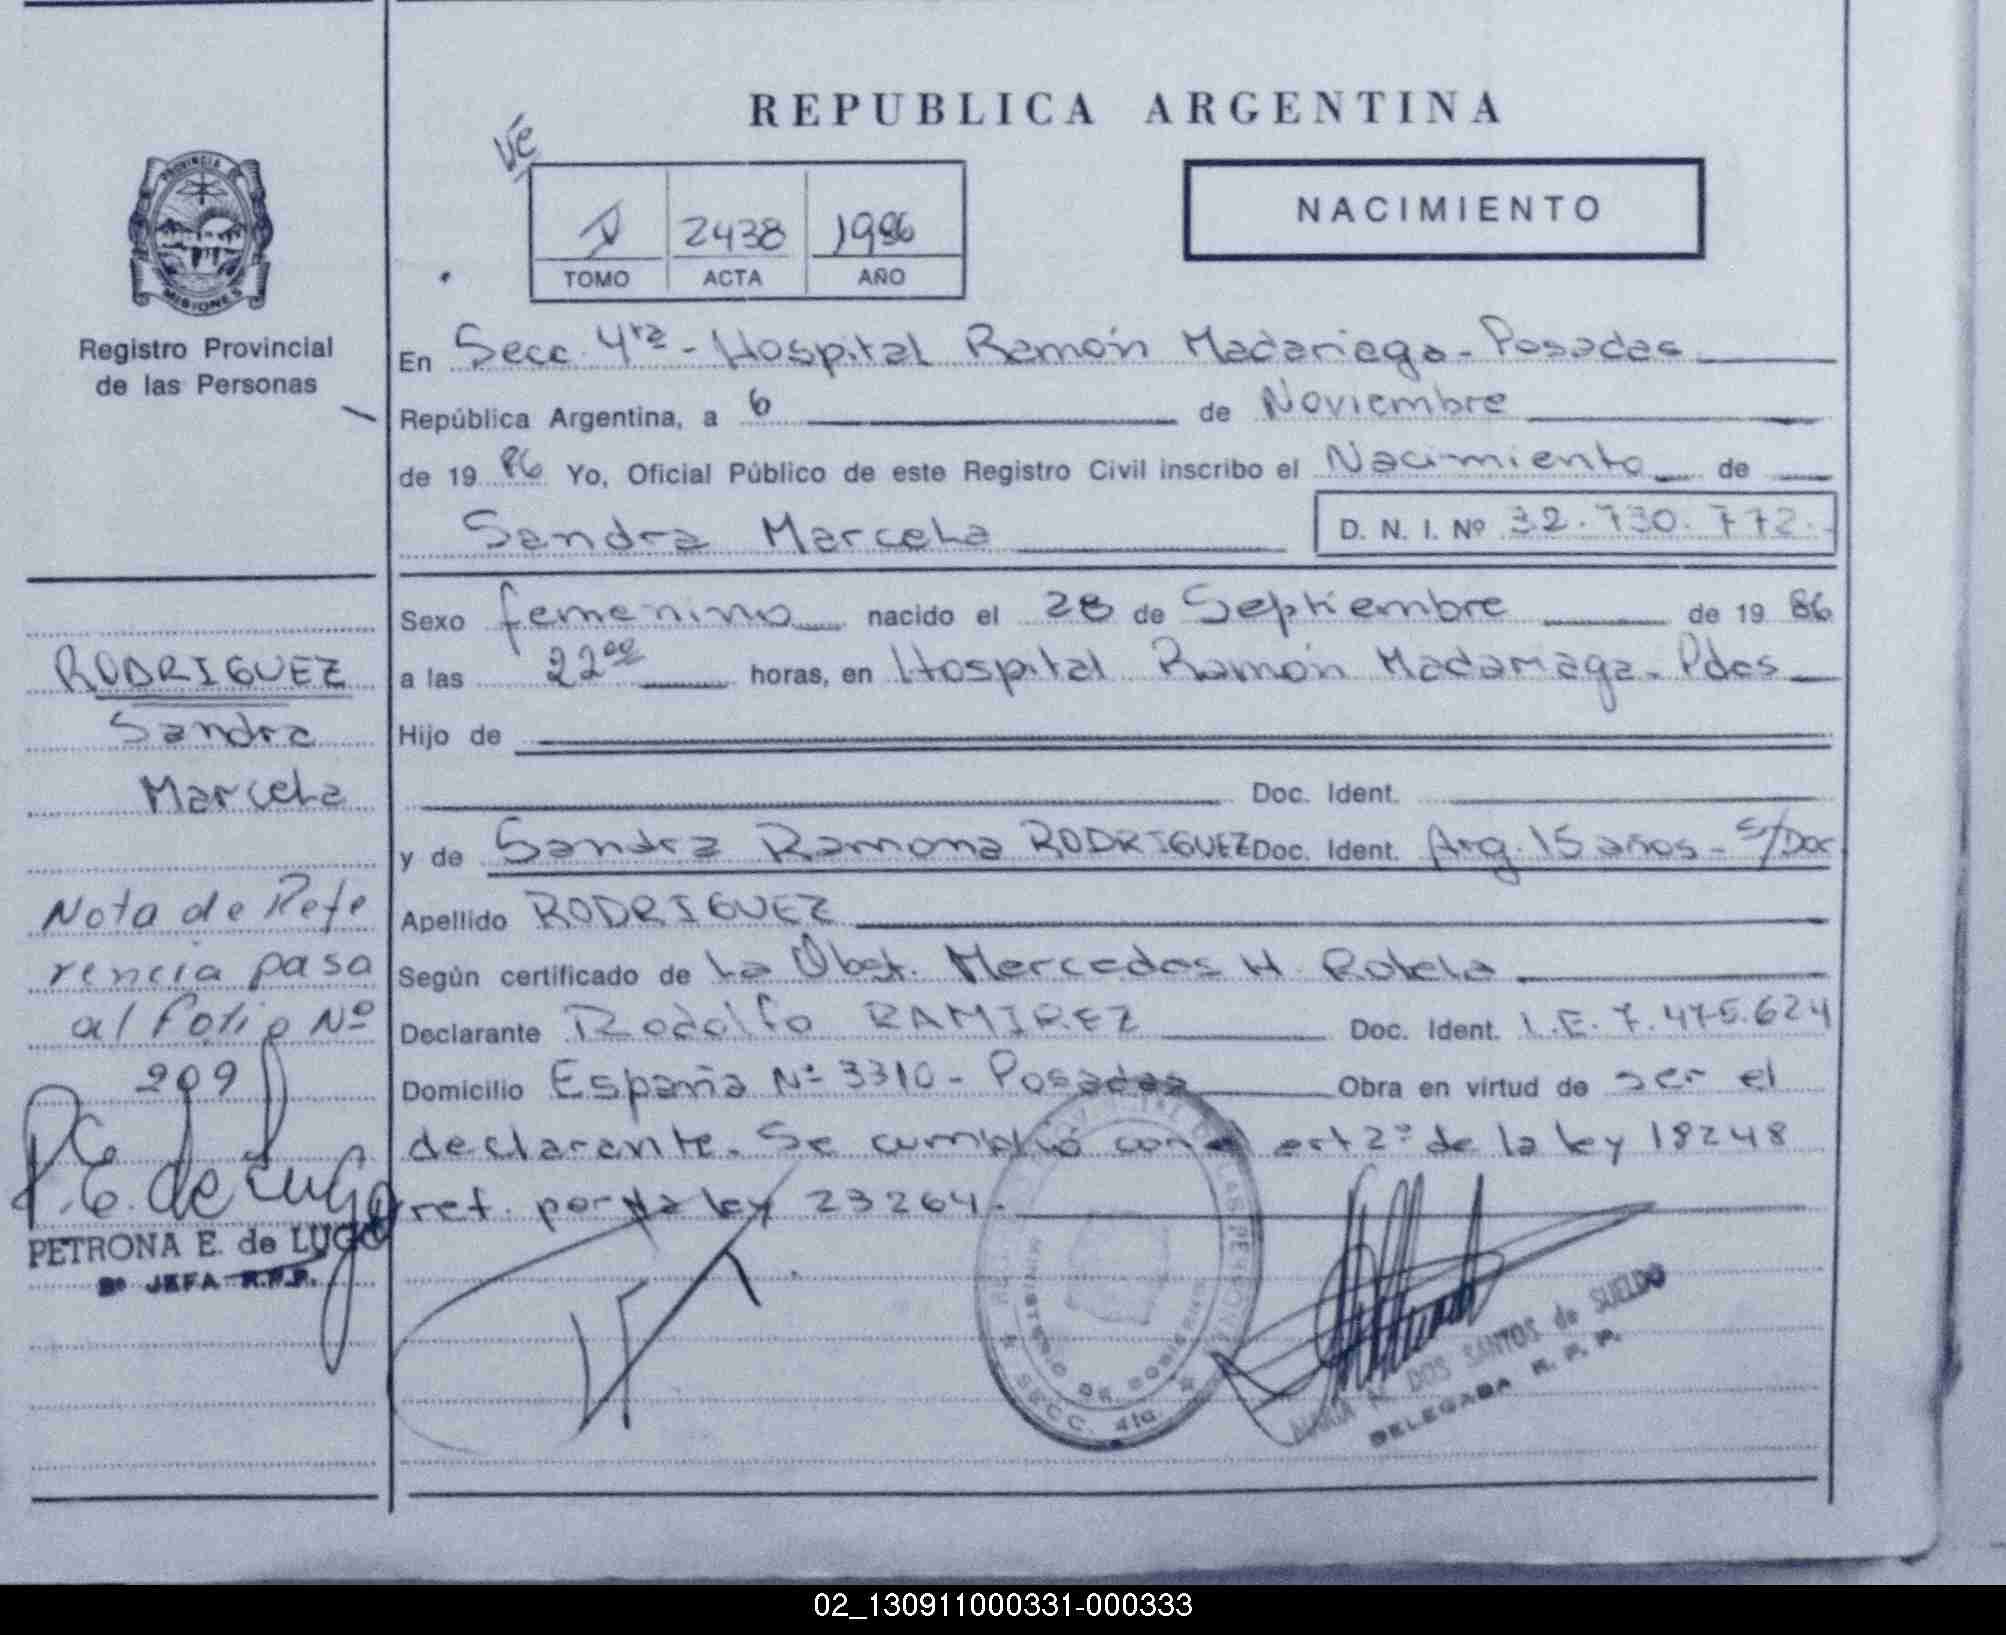 REPUBLICA ARGENTINA
Ve
NACIMIENTO
2438 1986
TOMO ACTA AÑO
PROVINCIA DE MISIONES
Registro Provincial
de las Personas
En Secc. 4ta - Hospital Ramón Madariaga - Posadas
República Argentina, a 6 de Noviembre
de 19 86 Yo, Oficial Público de este Registro Civil inscribo el Nacimiento de
Sandra Marcela D. N. I. Nº 32.730.772.-
Sexo femenino nacido el 28 de Septiembre de 19 86
a las 22 00 horas, en Hospital Ramón Madariaga - Pdas
Hijo de
Doc. Ident.
y de Sandra Ramona RODRIGUEZ Doc. Ident. Arg. 15 años - s/Doc
Apellido RODRIGUEZ
Según certificado de la Obst. Mercedes H. Rotela
Declarante Rodolfo RAMIREZ Doc. Ident. L.E. 7.475.624
Domicilio España Nº 3310 - Posadas Obra en virtud de ser el
declarante. Se cumplió con el art 2º de la ley 18248
ret. por la ley 23264.
RODRIGUEZ
Sandra
Marcela
Nota de Refe
rencia pasa
al Folio Nº
209
P.E. de Lugo
PETRONA E. de LUGO
2º JEFA R.P.P.
MINISTERIO DE GOBIERNO
SECC. 4ta
DOS SANTOS de SUELDO
DELEGADA R. P. P.
02_130911000331-000333